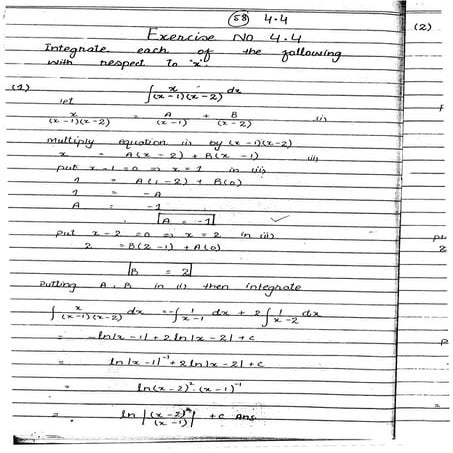 (58) 4.4
Exercise No 4.4
(2)
Integrate each of the following
with respect to 'x'.
(1) ∫ x/(x-1)(x-2) dx
let
x/(x-1)(x-2) = A/(x-1) + B/(x-2) (i)
multiply equation (i) by (x-1)(x-2)
x = A(x-2) + B(x-1) (ii)
put x-1=0 ⇒ x=1 in (ii)
1 = A(1-2) + B(0)
1 = -A
A = -1
A = -1 ✓
put x-2=0 ⇒ x=2 in (ii)
2 = B(2-1) + A(0)
B = 2
putting A, B in (i) then integrate
∫ x/(x-1)(x-2) dx = -∫ 1/x-1 dx + 2∫ 1/x-2 dx
= -ln|x-1| + 2ln|x-2| + c
= ln|x-1|⁻¹ + 2ln|x-2| + c
= ln(x-2)².(x-1)⁻¹
= ln |(x-2)²/(x-1)| + c Ans